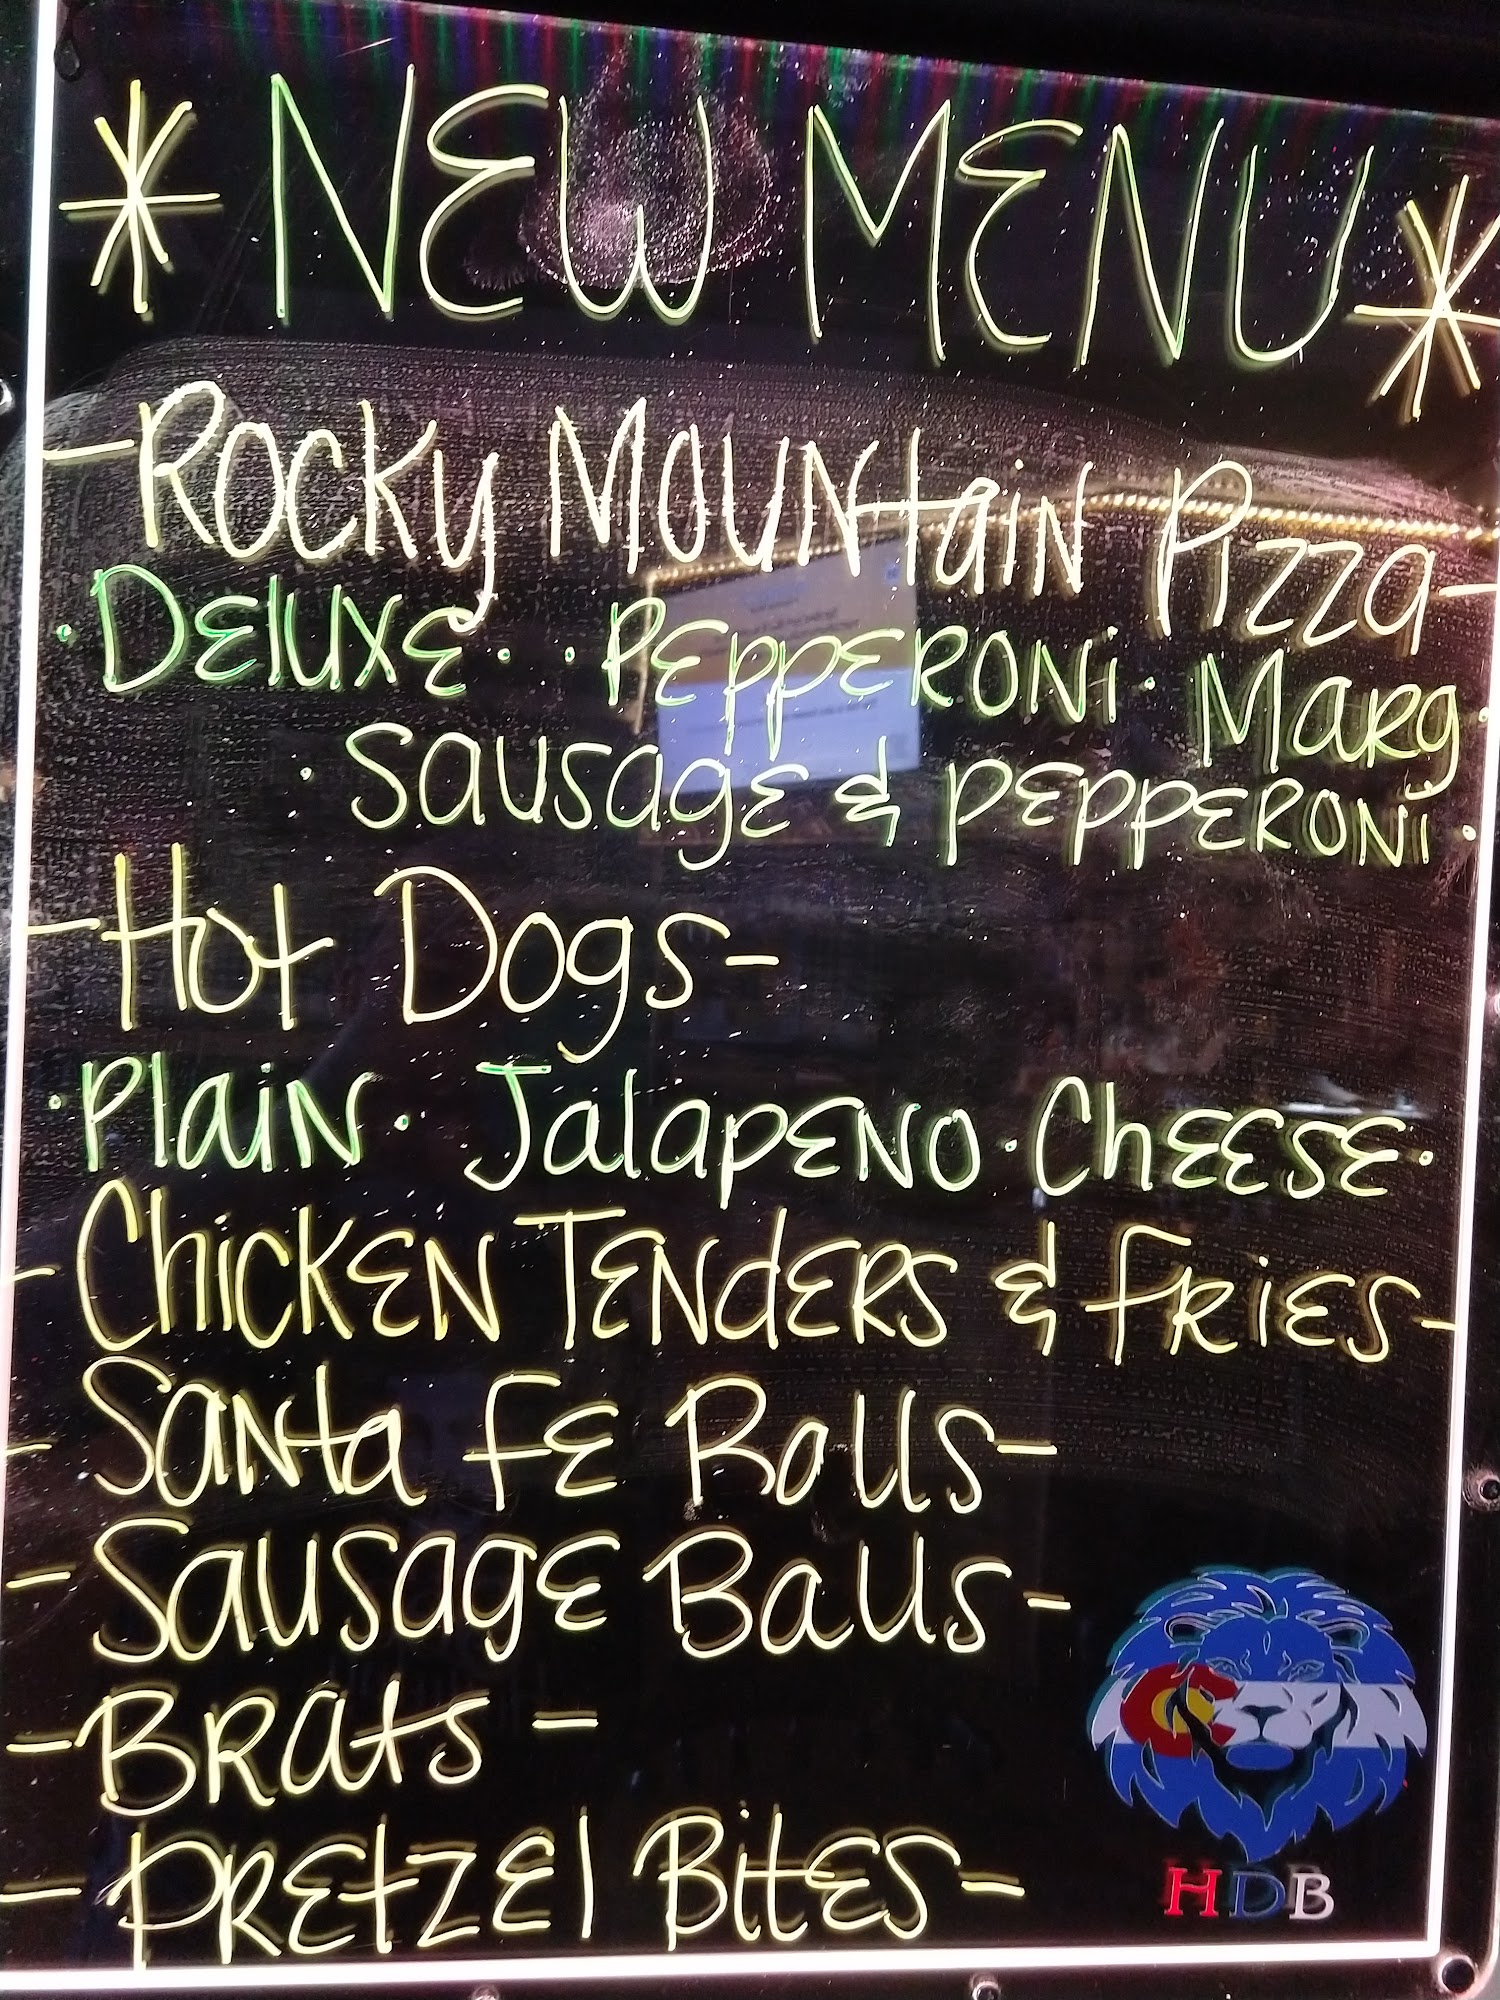 * NEW MENU *
- Rocky Mountain Pizza -
· Deluxe · · Pepperoni · Marg ·
· Sausage & Pepperoni ·
- Hot Dogs -
· Plain · Jalapeno · Cheese ·
- Chicken Tenders & Fries -
- Santa Fe Rolls -
- Sausage Balls -
- Brats -
- Pretzel Bites -
HDB